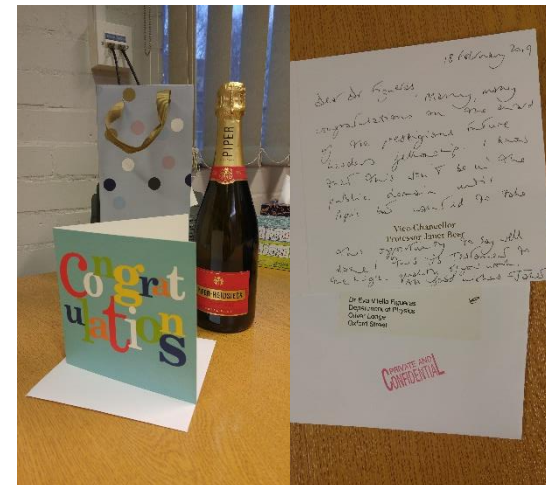 PIPER
PIPER-HEIDSIECK
Congrat
ulations
18 February 2019
Dear Dr Figueras, Many, many
congratulations on the award
of the prestigious future
leaders fellowship. I know
that this won't be in the
public domain until
but wanted to take
Vice-Chancellor
Professor Janet Beer
an opportunity to say well
done! This is testament to
the high quality of your work.
Dr Eva Vilella Figueras
Department of Physics
Oliver Lodge
Oxford Street
PRIVATE AND
CONFIDENTIAL